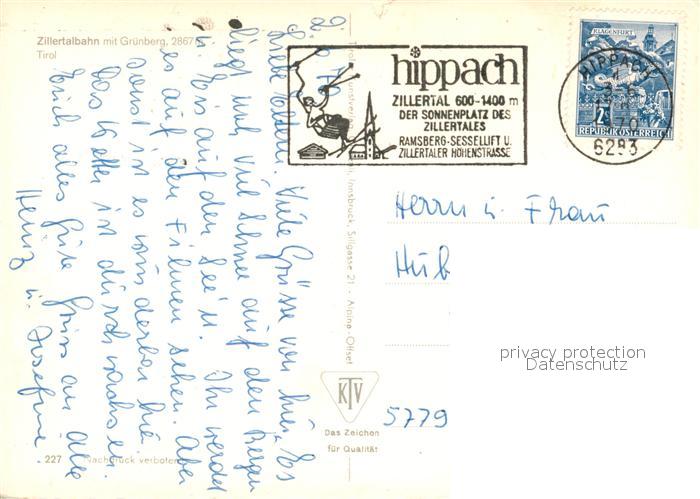 Zillertalbahn mit Grünberg, 2867
Tirol
2.6.70
Liebe Eltern. Viele Grüsse von hier. Es
liegt noch viel Schnee auf den Bergen
u. Eis auf den See'n. Ihr werdet
es auf den Filmen sehen. Aber
sonst ist es wunderbar hier.
Das Wetter ist durchwachsen.
Euch alles Gute Gruss an Alle
Heinz u. Josefine
227 Nachdruck verboten
Innsbruck, Sillgasse 21 - Alpina-Offset
KTV
Das Zeichen
für Qualität
hippach
ZILLERTAL 600-1400 m
DER SONNENPLATZ DES
ZILLERTALES
RAMSBERG-SESSELLIFT U.
ZILLERTALER HÖHENSTRASSE
KLAGENFURT
2
REPUBLIK ÖSTERREICH
HIPPACH
3.6
70
6283
Herrn u. Frau
Hub
privacy protection
Datenschutz
5779